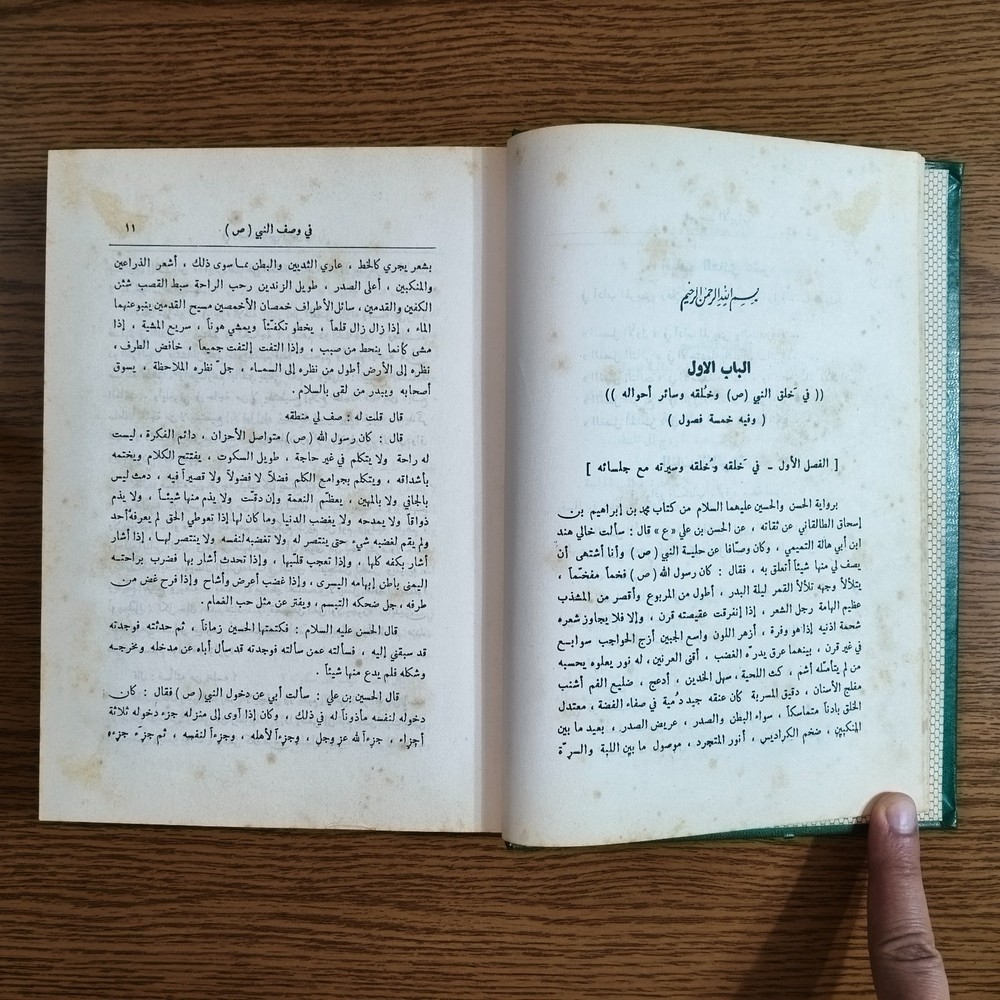 بسم الله الرحمن الرحيم
الباب الاول
(( في خَلق النبي (ص) وخُلقه وسائر أحواله ))
( وفيه خمسة فصول )
[ الفصل الأول ـ في خَلقه وخُلقه وسيرته مع جلسائه ]
برواية الحسن والحسين عليهما السلام من كتاب محمد بن إبراهيم بن
إسحاق الطالقاني عن ثقاته ، عن الحسن بن علي «ع» قال : سألت خالي هند
ابن أبي هالة التميمي ، وكان وصّافا عن حلية النبي ( ص ) وأنا أشتهى أن
يصف لي منها شيئاً أتعلق به ، فقال : كان رسول الله ( ص ) فخماً مفخّماً ،
يتلألأ وجهه تلألأ القمر ليلة البدر ، أطول من المربوع وأقصر من المشذب
عظيم الهامة رجل الشعر ، إذا إنفرقت عقيصته قرن ، وإلا فلا يجاوز شعره
شحمة اذنيه إذا هو وفرة ، أزهر اللون واسع الجبين أزج الحواجب سوابغ
في غير قرن ، بينهما عرق يدرّه الغضب ، أقنى العرنين ، له نور يعلوه يحسبه
من لم يتأمله أشم ، كث اللحية ، سهل الخدين ، أدعج ، ضليع الفم أشنب
مفلج الأسنان ، دقيق المسربة كان عنقه جيد دُمية في صفاء الفضة ، معتدل
الخلق بادناً متماسكاً ، سواء البطن والصدر ، عريض الصدر ، بعيد ما بين
المنكبين ، ضخم الكراديس ، أنور المتجرد ، موصول ما بين اللبة والسرّة
في وصف النبي ( ص )
١١
بشعر يجري كالخط ، عاري الثديين والبطن مما سوى ذلك ، أشعر الذراعين
والمنكبين ، أعلى الصدر ، طويل الزندين رحب الراحة سبط القصب شثن
الكفين والقدمين ، سائل الأطراف خمصان الأخمصين مسيح القدمين ينبو عنهما
الماء ، إذا زال زال قلعاً ، يخطو تكفّئاً ويمشي هوناً ، سريع المشية ، إذا
مشى كأنما ينحط من صبب ، وإذا التفت إلتفت جميعاً ، خافض الطرف ،
نظره إلى الأرض أطول من نظره إلى السماء ، جلّ نظره الملاحظة ، يسوق
أصحابه ويبدر من لقى بالسلام .
قال قلت له : صف لي منطقه
قال : كان رسول الله ( ص ) متواصل الأحزان ، دائم الفكرة ، ليست
له راحة ولا يتكلم في غير حاجة ، طويل السكوت ، يفتتح الكلام ويختمه
بأشداقه ، ويتكلم بجوامع الكلم فضلاً لا فضولاً ولا قصيراً فيه ، دمث ليس
بالجافي ولا بالمهين ، يعظّم النعمة وإن دقّت ولا يذم منها شيئاً ، ولا يذم
ذواقاً ولا يمدحه ولا يغضب الدنيا وما كان لها إذا تعوطي الحق لم يعرفه أحد
ولم يقم لغضبه شيء حتى ينتصر له ولا تغضبه لنفسه ولا ينتصر لها ، إذا أشار
أشار بكفه كلها ، وإذا تعجب قلبها ، وإذا تحدث أشار بها فضرب براحته
اليمني باطن إبهامه اليسرى ، وإذا غضب أعرض وأشاح وإذا فرح غض من
طرفه ، جل ضحكه التبسم ، ويفتر عن مثل حب الغمام .
قال الحسن عليه السلام : فكتمتها الحسين زماناً ، ثم حدثته فوجدته
قد سبقني إليه ، فسألته عمن سألته فوجدته قد سأل أباه عن مدخله ومخرجه
وشكله فلم يدع منها شيئاً .
قال الحسين بن علي : سألت أبي عن دخول النبي ( ص ) فقال : كان
دخوله لنفسه مأذوناً له في ذلك ، وكان إذا آوى إلى منزله جزء دخوله ثلاثة
أجزاء ، جزءاً لله عز وجل ، وجزءاً لأهله ، وجزءاً لنفسه ، ثم جزء جزءه